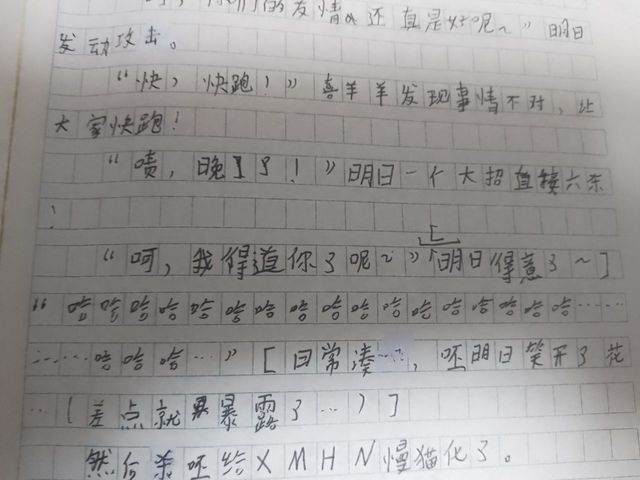 你们的友情还真是好呢~”明日
发动攻击。
“快，快跑！”喜羊羊发现事情不对，让
大家快跑！
“啧，晚了了！”明日一个大招直接六杀
！
“呵，我得道你了呢~”[明日得意了~]
“哈哈哈哈哈哈哈哈哈哈哈哈哈哈哈哈哈……
……哈哈哈…”[日常凑…，呸明日笑开了花
…(差点就暴露了…)]
然后杀呸给XMHN慢猫化了。